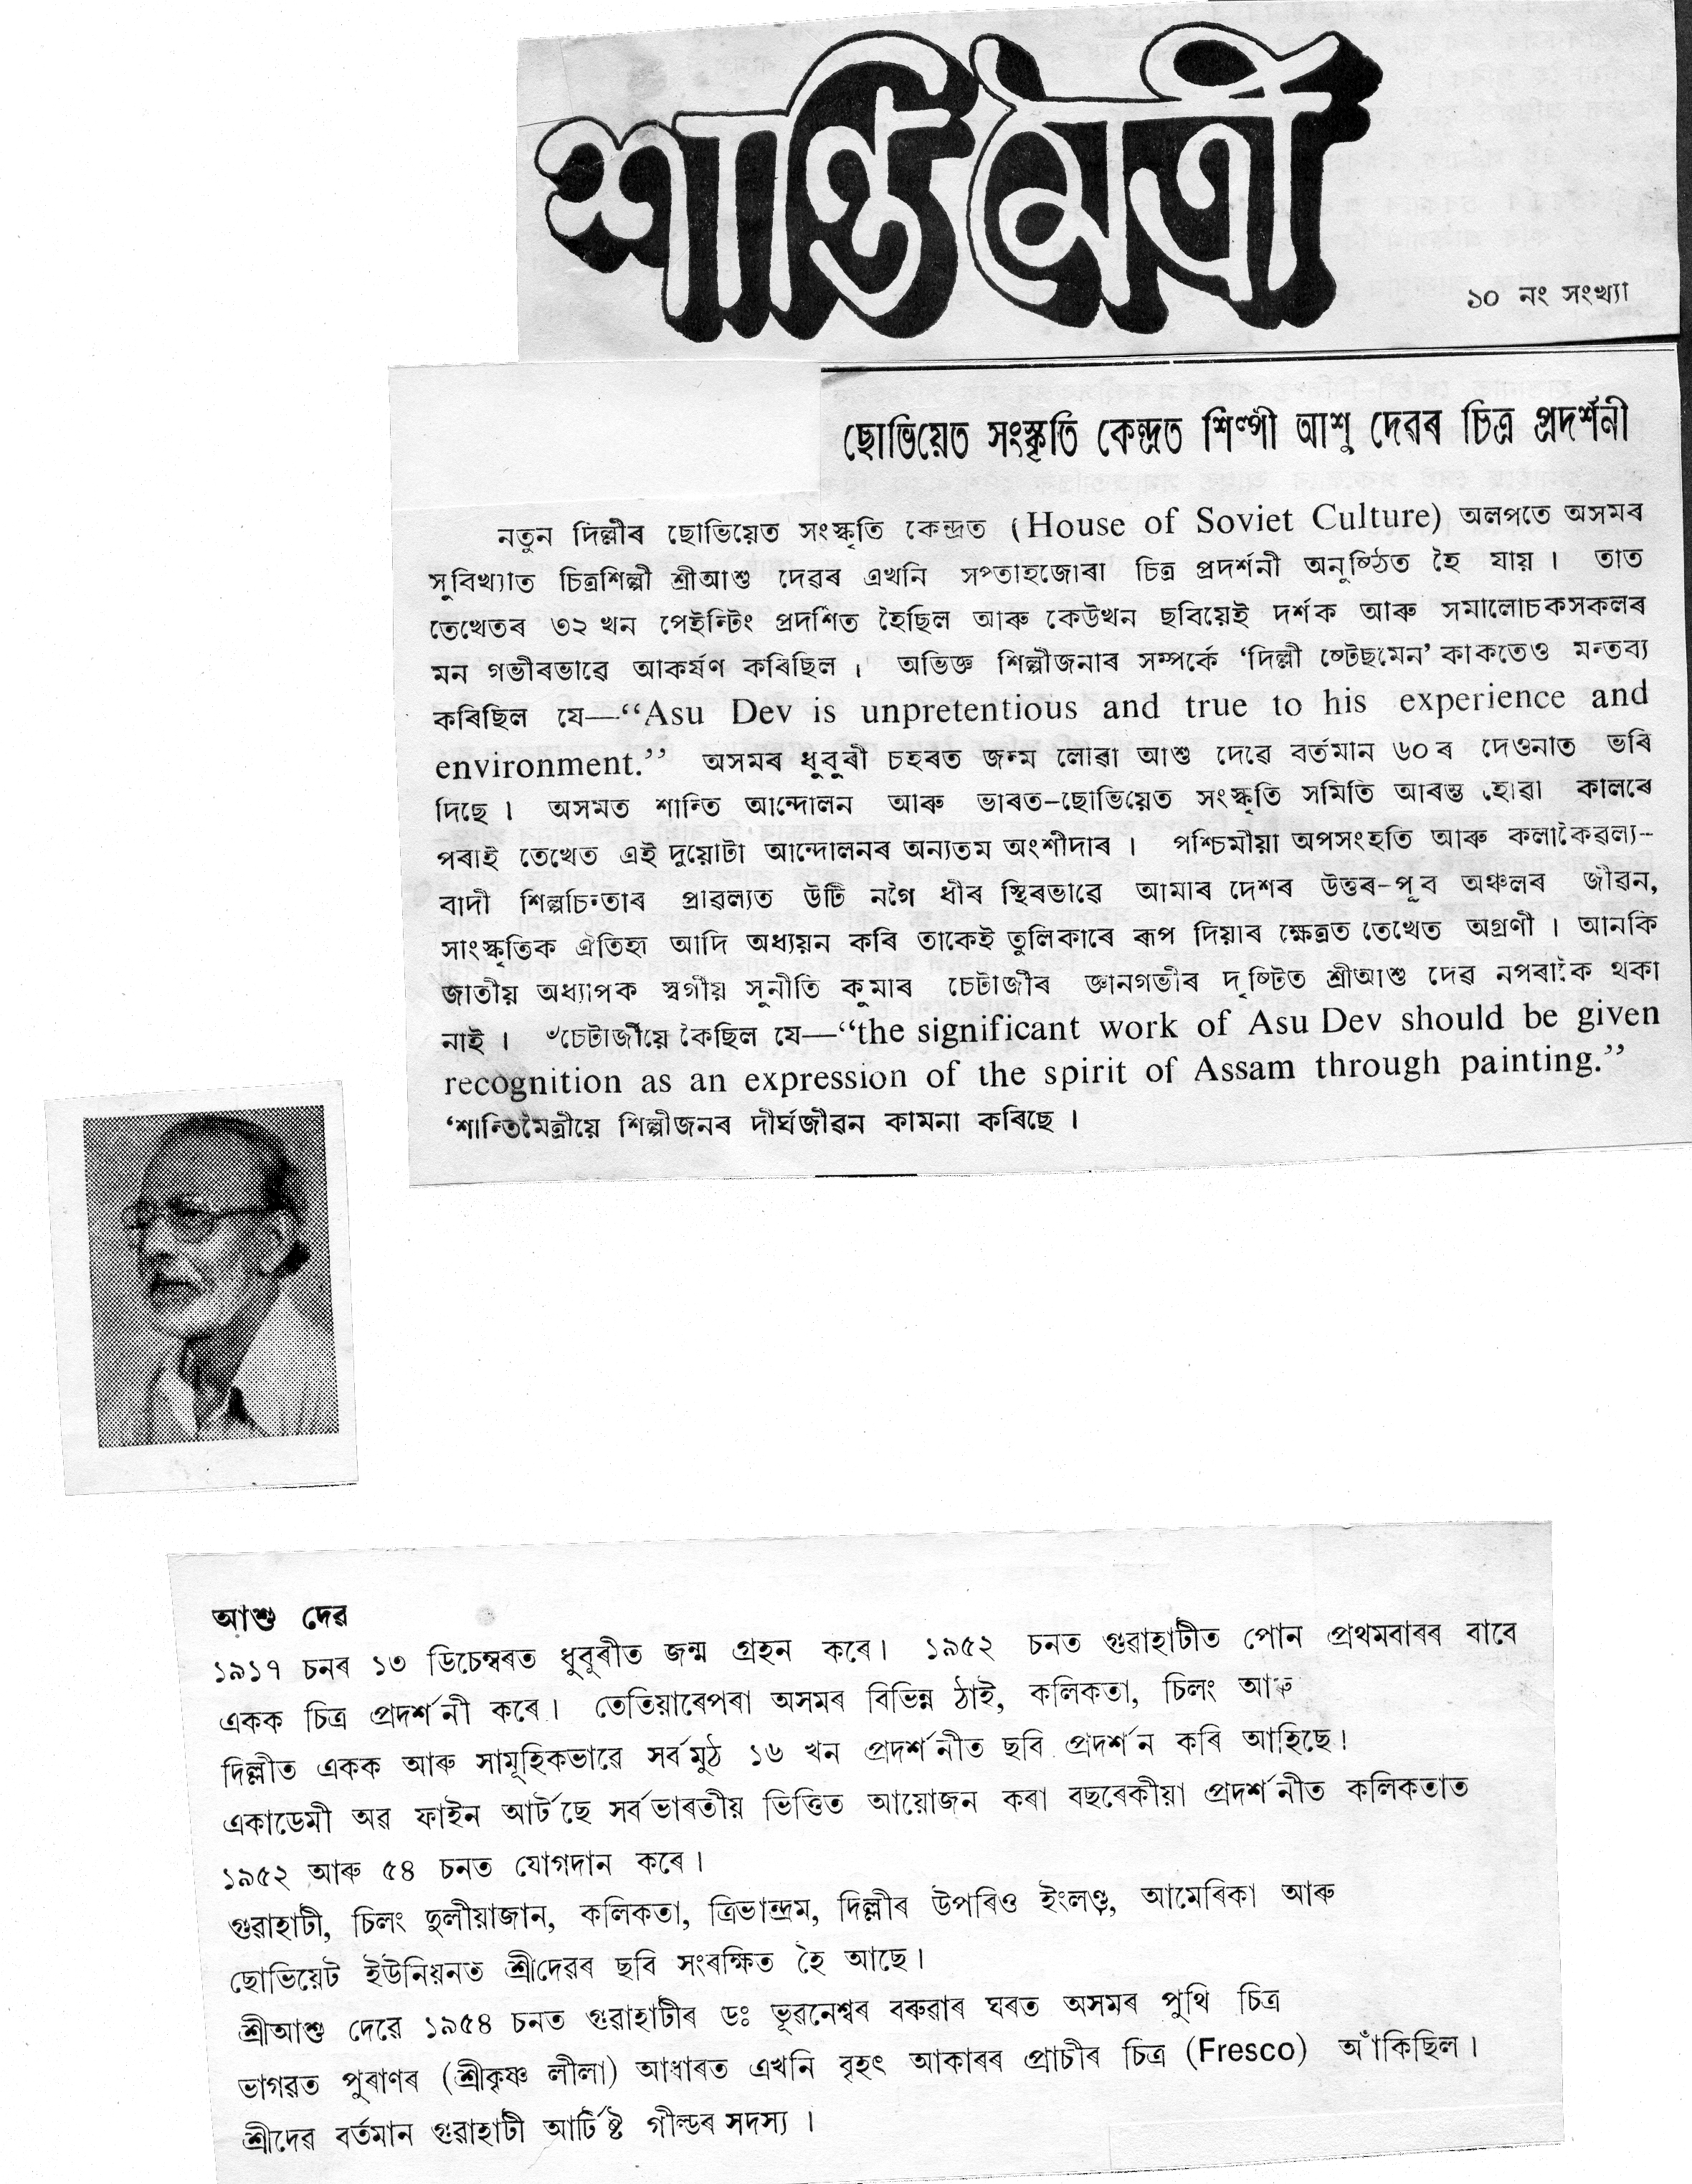 শান্তিমৈত্ৰী
১০ নং সংখ্যা
ছোভিয়েত সংস্কৃতি কেন্দ্ৰত শিল্পী আশু দেৱৰ চিত্ৰ প্ৰদৰ্শনী
নতুন দিল্লীৰ ছোভিয়েত সংস্কৃতি কেন্দ্ৰত (House of Soviet Culture) অলপতে অসমৰ
সুবিখ্যাত চিত্ৰশিল্পী শ্ৰীআশু দেৱৰ এখনি সপ্তাহজোৰা চিত্ৰ প্ৰদৰ্শনী অনুষ্ঠিত হৈ যায়। তাত
তেখেতৰ ৩২ খন পেইন্টিং প্ৰদৰ্শিত হৈছিল আৰু কেউখন ছবিয়েই দৰ্শক আৰু সমালোচকসকলৰ
মন গভীৰভাৱে আকৰ্ষণ কৰিছিল। অভিজ্ঞ শিল্পীজনাৰ সম্পৰ্কে ‘দিল্লী ষ্টেছমেন’ কাকতেও মন্তব্য
কৰিছিল যে—“Asu Dev is unpretentious and true to his experience and
environment.” অসমৰ ধুবুৰী চহৰত জন্ম লোৱা আশু দেৱে বৰ্তমান ৬০ ৰ দেওনাত ভৰি
দিছে। অসমত শান্তি আন্দোলন আৰু ভাৰত-ছোভিয়েত সংস্কৃতি সমিতি আৰম্ভ হোৱা কালৰে
পৰাই তেখেত এই দুয়োটা আন্দোলনৰ অন্যতম অংশীদাৰ। পশ্চিমীয়া অপসংহতি আৰু কলাকৈৱল্য-
বাদী শিল্পচিন্তাৰ প্ৰাৱল্যত উটি নগৈ ধীৰ স্থিৰভাৱে আমাৰ দেশৰ উত্তৰ-পূব অঞ্চলৰ জীৱন,
সাংস্কৃতিক ঐতিহ্য আদি অধ্যয়ন কৰি তাকেই তুলিকাৰে ৰূপ দিয়াৰ ক্ষেত্ৰত তেখেত অগ্ৰণী। আনকি
জাতীয় অধ্যাপক স্বৰ্গীয় সুনীতি কুমাৰ চেটাৰ্জীৰ জ্ঞানগভীৰ দৃষ্টিত শ্ৰীআশু দেৱ নপৰাকৈ থকা
নাই। ঁচেটাৰ্জীয়ে কৈছিল যে—“the significant work of Asu Dev should be given
recognition as an expression of the spirit of Assam through painting.”
‘শান্তিমৈত্ৰীয়ে শিল্পীজনৰ দীৰ্ঘজীৱন কামনা কৰিছে।
আশু দেৱ
১৯১৭ চনৰ ১৩ ডিচেম্বৰত ধুবুৰীত জন্ম গ্ৰহন কৰে। ১৯৫২ চনত গুৱাহাটীত পোন প্ৰথমবাৰৰ বাবে
একক চিত্ৰ প্ৰদৰ্শনী কৰে। তেতিয়াৰেপৰা অসমৰ বিভিন্ন ঠাই, কলিকতা, চিলং আৰু
দিল্লীত একক আৰু সামূহিকভাৱে সৰ্বমুঠ ১৬ খন প্ৰদৰ্শনীত ছবি প্ৰদৰ্শন কৰি আহিছে।
একাডেমী অৱ ফাইন আৰ্টছে সৰ্বভাৰতীয় ভিত্তিত আয়োজন কৰা বছৰেকীয়া প্ৰদৰ্শনীত কলিকতাত
১৯৫২ আৰু ৫৪ চনত যোগদান কৰে।
গুৱাহাটী, চিলং দুলীয়াজান, কলিকতা, ত্ৰিভান্দ্ৰম, দিল্লীৰ উপৰিও ইংলণ্ড, আমেৰিকা আৰু
ছোভিয়েট ইউনিয়নত শ্ৰীদেৱৰ ছবি সংৰক্ষিত হৈ আছে।
শ্ৰীআশু দেৱে ১৯৫৪ চনত গুৱাহাটীৰ ডঃ ভূৱনেশ্বৰ বৰুৱাৰ ঘৰত অসমৰ পুথি চিত্ৰ
ভাগৱত পুৰাণৰ (শ্ৰীকৃষ্ণ লীলা) আধাৰত এখনি বৃহৎ আকাৰৰ প্ৰাচীৰ চিত্ৰ (Fresco) আঁকিছিল।
শ্ৰীদেৱ বৰ্তমান গুৱাহাটী আৰ্টিষ্ট গীল্ডৰ সদস্য।